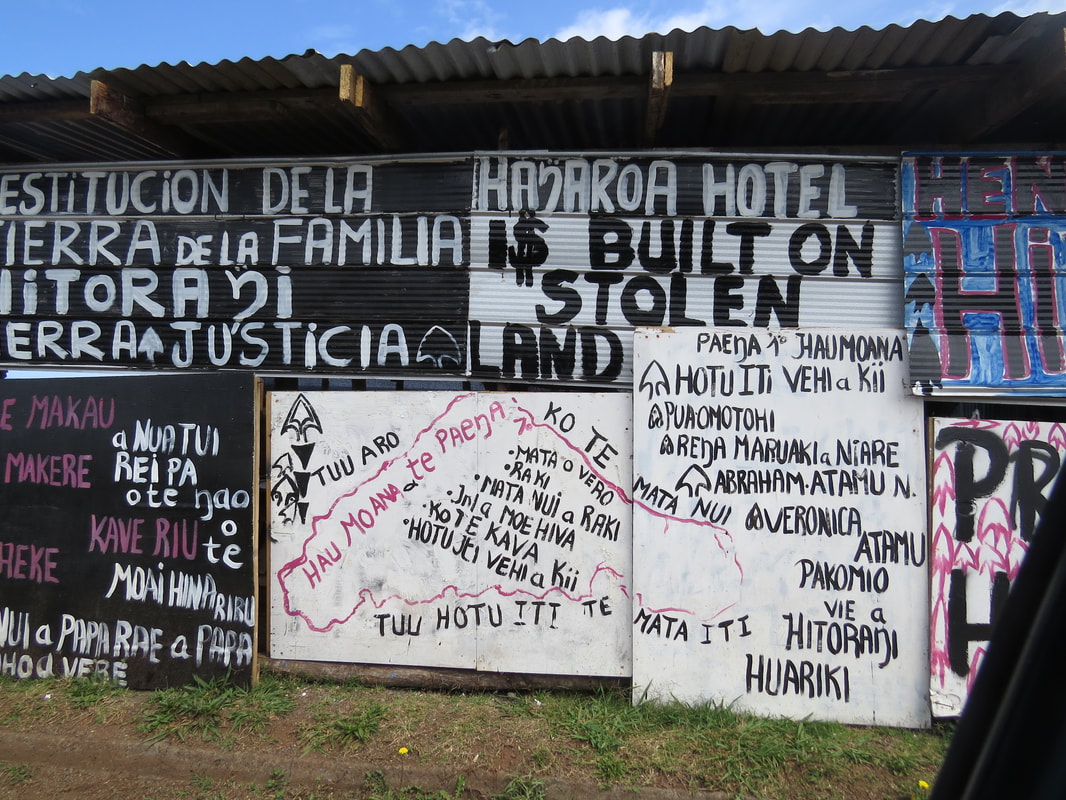 ESTITUCION DE LA
TIERRA DE LA FAMILIA
HITORAŊI
ERRA JUSTICIA
HAŊAROA HOTEL
I$ BUILT ON
STOLEN
LAND
HEN
HI
E MAKAU
a NUA TUI
REI PA
MAKERE
o te ŋao
o
KAVE RIU te
HEKE
MOAI HINARIRU
NUI a PAPA RAE a PAPA
VERE
TUU ARO
HAU MOANA a te PAEŊA
KO TE
MATA NUI
•MATA o VERO
•RAKI
•MATA NUI a RAKI
a MOE HIVA
•KO TE KAVA
•HOTU ITI VEHI a Kii
TUU HOTU ITI TE
MATA ITI
PAEŊA 1º HAUMOANA
HOTU ITi VEHI a Kii
PUAOMOTOHI
REŊA MARUAKI a NiARE
ABRAHAM·ATAMU N.
VERONICA
ATAMU
PAKOMIO
VIE a
HITORAŊI
HUARIKI
PR
H